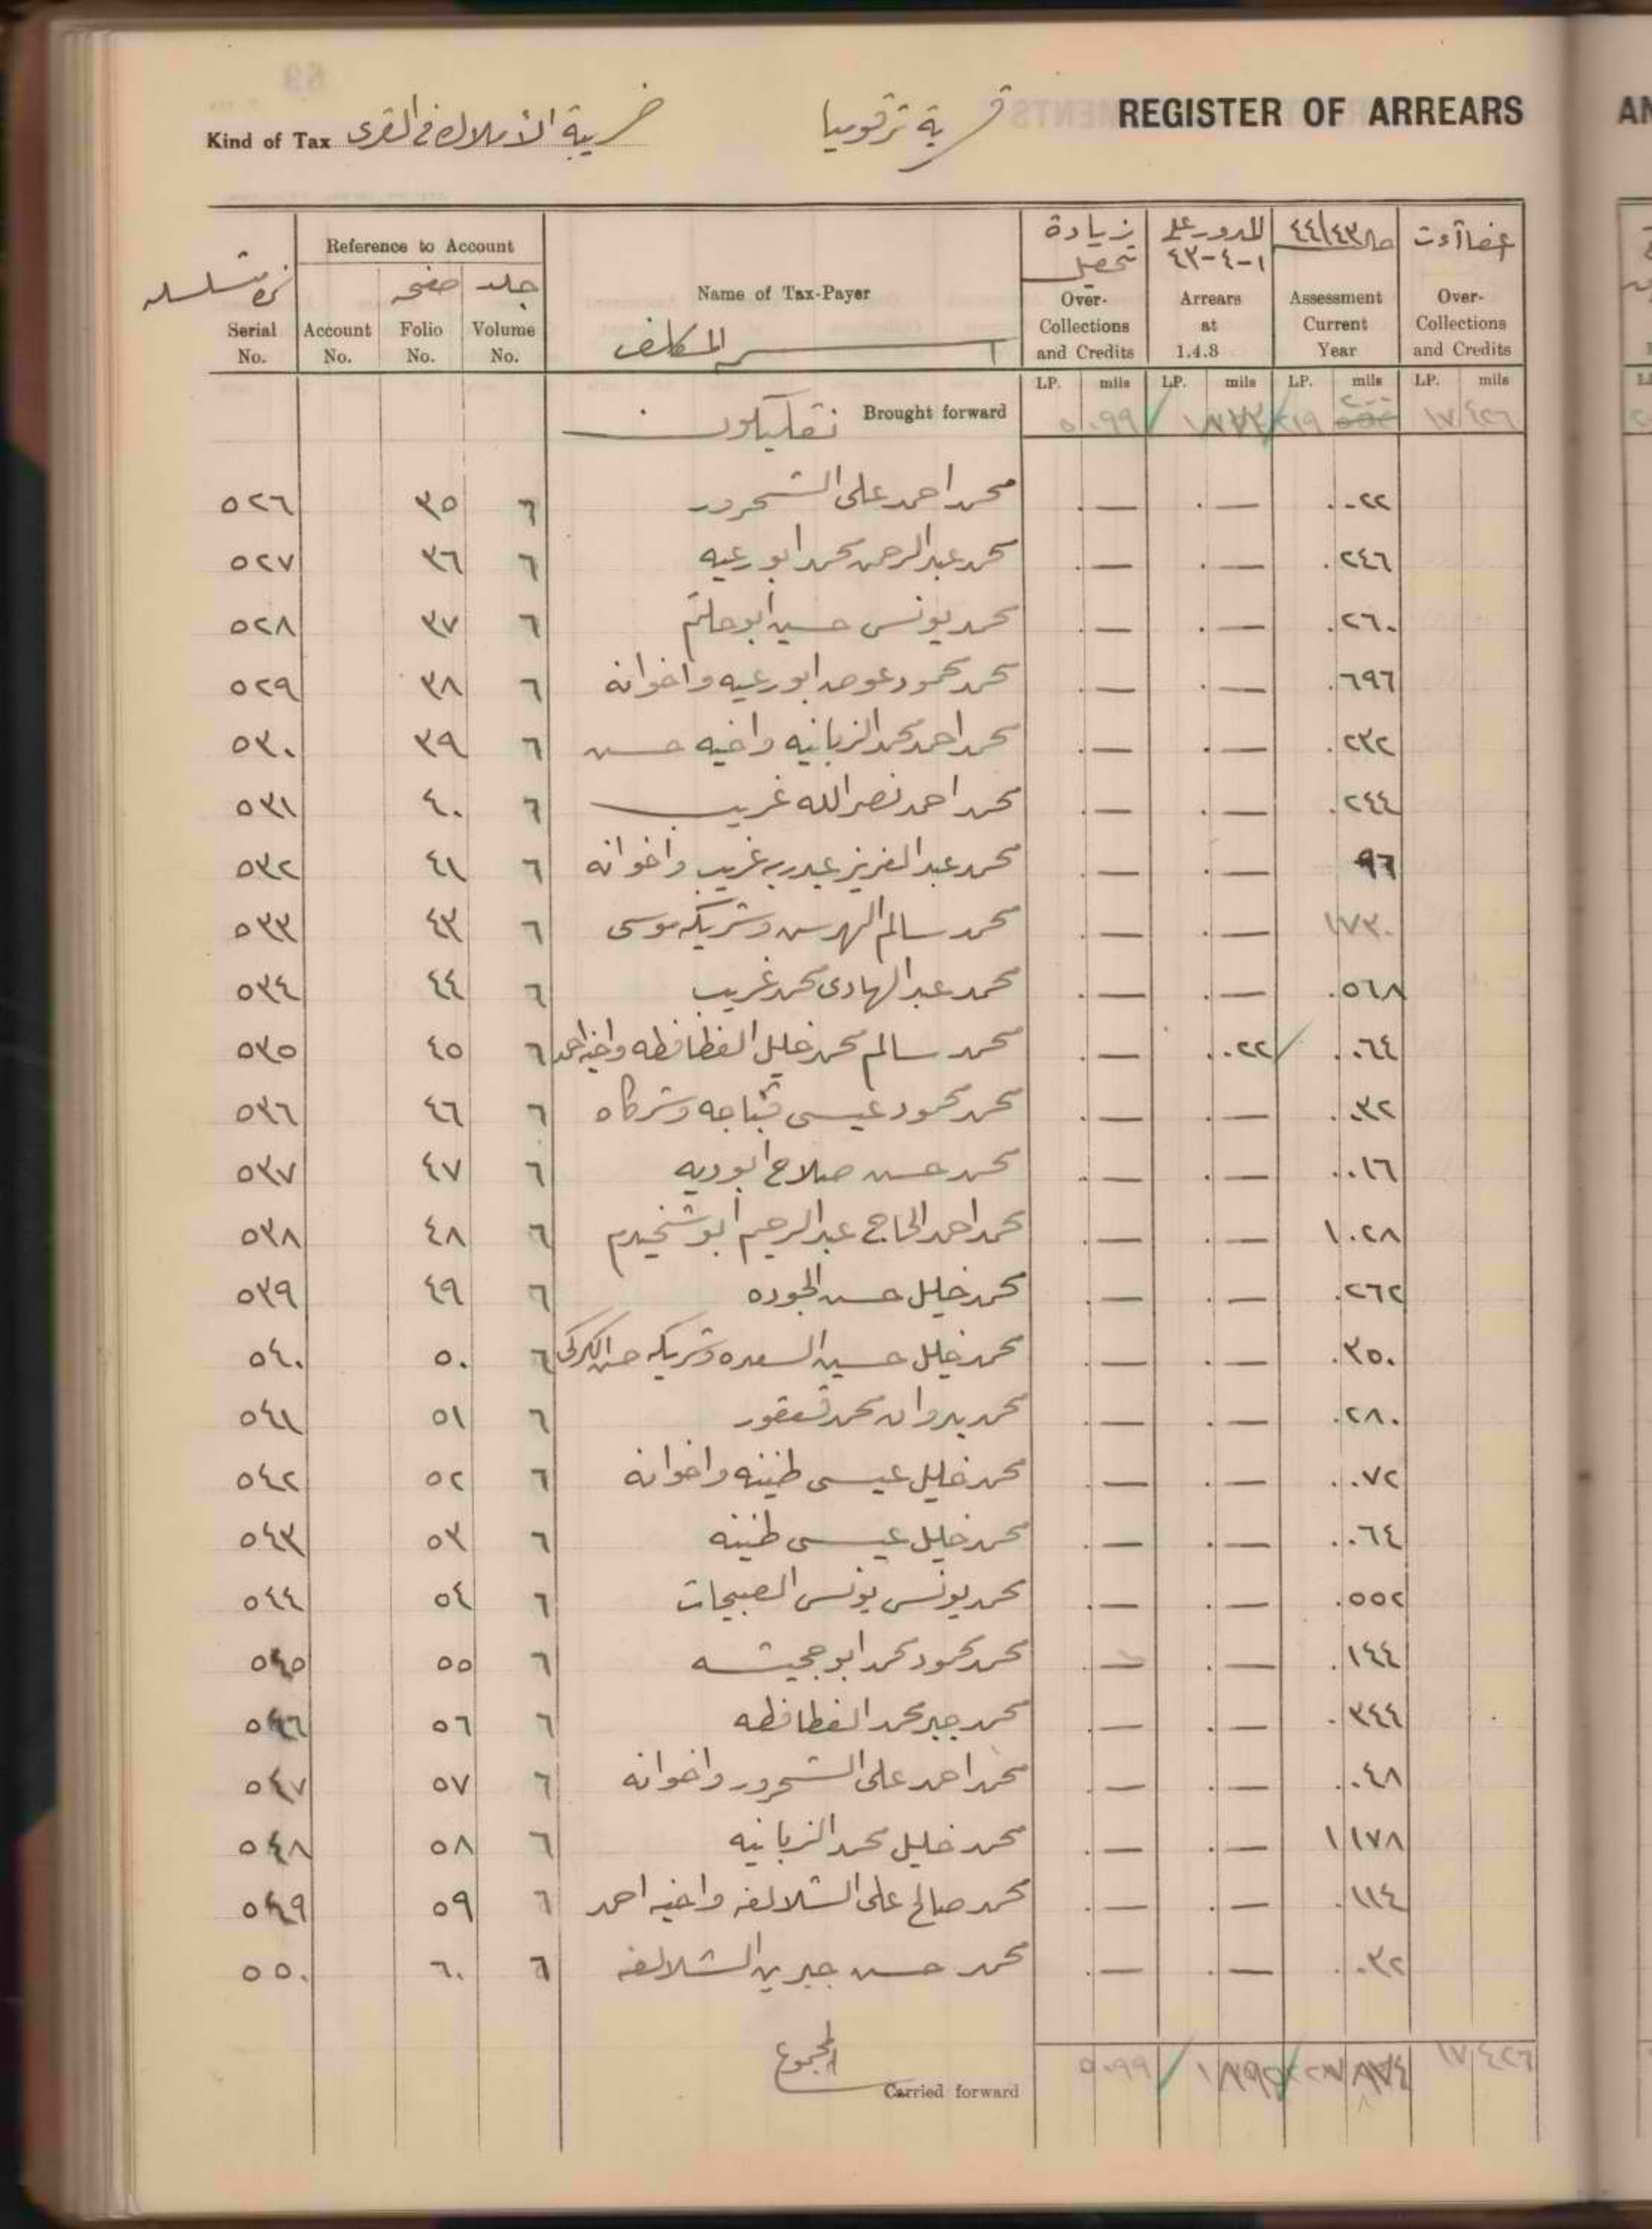 REGISTER OF ARREARS
قرية ترقوميا
Kind of Tax ضريبة الأملاك في القرى
Reference to Account
Serial No.
Account No.
صفحة Folio No.
جلد Volume No.
Name of Tax-Payer
اسم المكلف
زيادة تحصيل Over-Collections and Credits
المدور على ١-٤-٤٣ Arrears at 1.4.8
حال ٤٤/٤٣ Assessment Current Year
Over-Collections and Credits
LP. mils LP. mils LP. mils LP. mils
Brought forward ٥.٩٩ ١٧ ٤٢٦
٥٢٦ ٣٥ ٦ محمد احمد علي الشحرور .— .— .٠٢٢
٥٢٧ ٣٦ ٦ محمد عبدالرحمن محمد ابو رعيه .— .— .٢٤٦
٥٢٨ ٣٧ ٦ محمد يونس حسين أبو حلتم .— .— .٢٦٠
٥٢٩ ٣٨ ٦ محمد محمود عوض ابو رعيه واخوانه .— .— .٦٩٦
٥٣٠ ٣٩ ٦ محمد احمد محمد الزبانيه واخيه حسن .— .— .٢٣٢
٥٣١ ٤٠ ٦ محمد احمد نصرالله غريب .— .— .٢٤٤
٥٣٢ ٤١ ٦ محمد عبد العزيز عبدربه غريب واخوانه .— .— ٩٦
٥٣٣ ٤٣ ٦ محمد سالم الهرس وشريكه موسى .— .— ١٧٣٠
٥٣٤ ٤٤ ٦ محمد عبد الهادى محمد غريب .— .— .٥٦٨
٥٣٥ ٤٥ ٦ محمد سالم محمد خليل الفطافطه واخيه احمد .— .٠٢٢ .٠٦٤
٥٣٦ ٤٦ ٦ محمد محمود عيسى قباجه وشركاه .— .— .٠٣٢
٥٣٧ ٤٧ ٦ محمد حسن صلاح أبو ديه .— .— .٠١٦
٥٣٨ ٤٨ ٦ محمد احمد الحاج عبد الرحيم أبو شخيدم .— .— ١٠٢٨
٥٣٩ ٤٩ ٦ محمد خليل حسن الجوده .— .— .٢٦٢
٥٤٠ ٥٠ ٦ محمد خليل حسين السعده وشريكه حسن الكركي .— .— .٣٥٠
٥٤١ ٥١ ٦ محمد بدوان محمد قعقور .— .— .٢٨٠
٥٤٢ ٥٢ ٦ محمد خليل عيسى طنينه واخوانه .— .— .٠٧٢
٥٤٣ ٥٣ ٦ محمد خليل عيسى طنينه .— .— .٠٦٤
٥٤٤ ٥٤ ٦ محمد يونس يونس الصبيحات .— .— .٥٥٢
٥٤٥ ٥٥ ٦ محمد محمود محمد ابو جحيشه .— .— .١٤٤
٥٤٦ ٥٦ ٦ محمد جبر محمد الفطافطه .— .— .٣٤٤
٥٤٧ ٥٧ ٦ محمد احمد علي الشحرور واخوانه .— .— .٠٤٨
٥٤٨ ٥٨ ٦ محمد خليل محمد الزبانيه .— .— ١١٧٨
٥٤٩ ٥٩ ٦ محمد صالح علي الشلالفه واخيه احمد .— .— .١١٤
٥٥٠ ٦٠ ٦ محمد حسن جبرين الشلالفه .— .— .٠٣٢
المجموع
Carried forward ٥.٩٩ ١٧ ٤٢٦